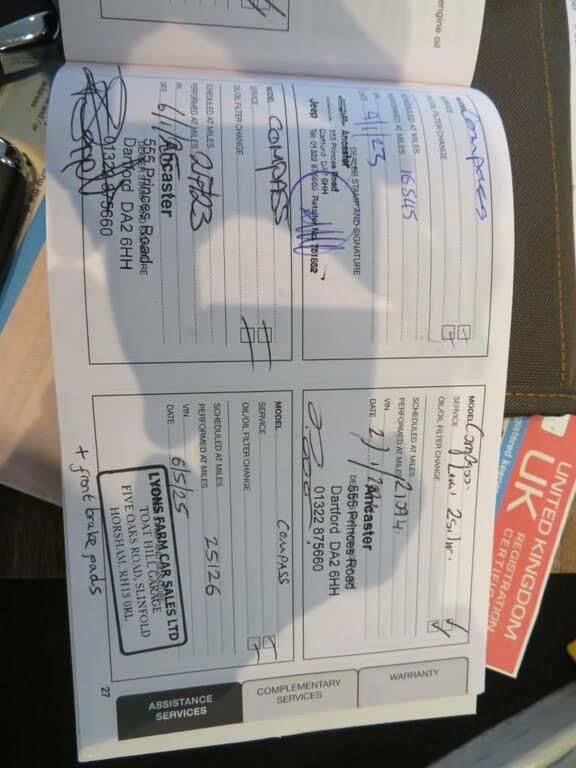 engine oil
MODEL Compass
SERVICE
OIL/OIL FILTER CHANGE
SCHEDULED AT MILES
PERFORMED AT MILES 16845
VIN
DATE 4/1/23
DEALER STAMP AND SIGNATURE
Ancaster
555 Princes Road
Dartford DA2 6HH
Jeep Tel: 01322 875660 Retailer No. 751862
MODEL COMPASS
SERVICE
OIL/OIL FILTER CHANGE
SCHEDULED AT MILES
PERFORMED AT MILES
VIN
DATE 6/1/
Ancaster
555 Princes Road
Dartford DA2 6HH
01322 875660
MODEL Compass
SERVICE
OIL/OIL FILTER CHANGE
SCHEDULED AT MILES
PERFORMED AT MILES 21094
VIN
DATE 2/1/
Ancaster
555 Princes Road
Dartford DA2 6HH
01322 875660
MODEL COMPASS
SERVICE
OIL/OIL FILTER CHANGE
SCHEDULED AT MILES
PERFORMED AT MILES 25126
VIN
DATE 6/5/25
LYONS FARM CAR SALES LTD
TOAT HILL GARAGE
FIVE OAKS ROAD, SLINFOLD
HORSHAM, RH13 0RL
+ front brake pads
27
WARRANTY
COMPLEMENTARY
SERVICES
ASSISTANCE
SERVICES
UNITED KINGDOM
UK
REGISTRATION
CERTIFICATE